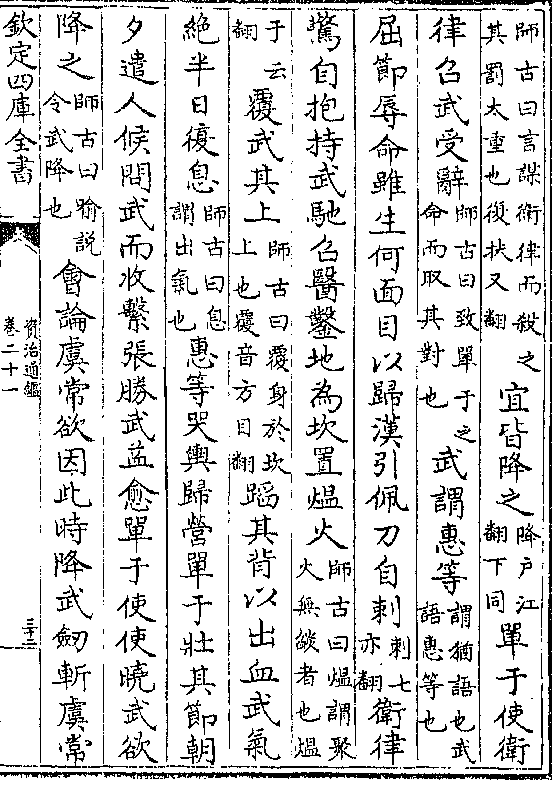 師古曰言謀衛律而殺之其罰太重也復扶又翻宜皆降之降戶江翻下同單于使衛
律召武受辭師古曰致單于之命而取其對也武謂惠等謂猶語也武語惠等也
屈節辱命雖生何面目以歸漢引佩刀自刺刺七亦翻衛律
驚自抱持武馳召醫鑿地為坎置熅火師古曰熅謂聚火無㷔者也熅
于云翻覆武其上師古曰覆身於坎上也覆音方目翻蹈其背以出血武氣
絶半日復息師古曰息謂出氣也惠等哭輿歸營單于壯其節朝
夕遣人候問武而收繫張勝武益愈單于使使曉武欲
降之師古曰喻說令武降也會論虞常欲因此時降武劒斬虞常
欽定四庫全書
資治通鑑
卷二十一
三十三